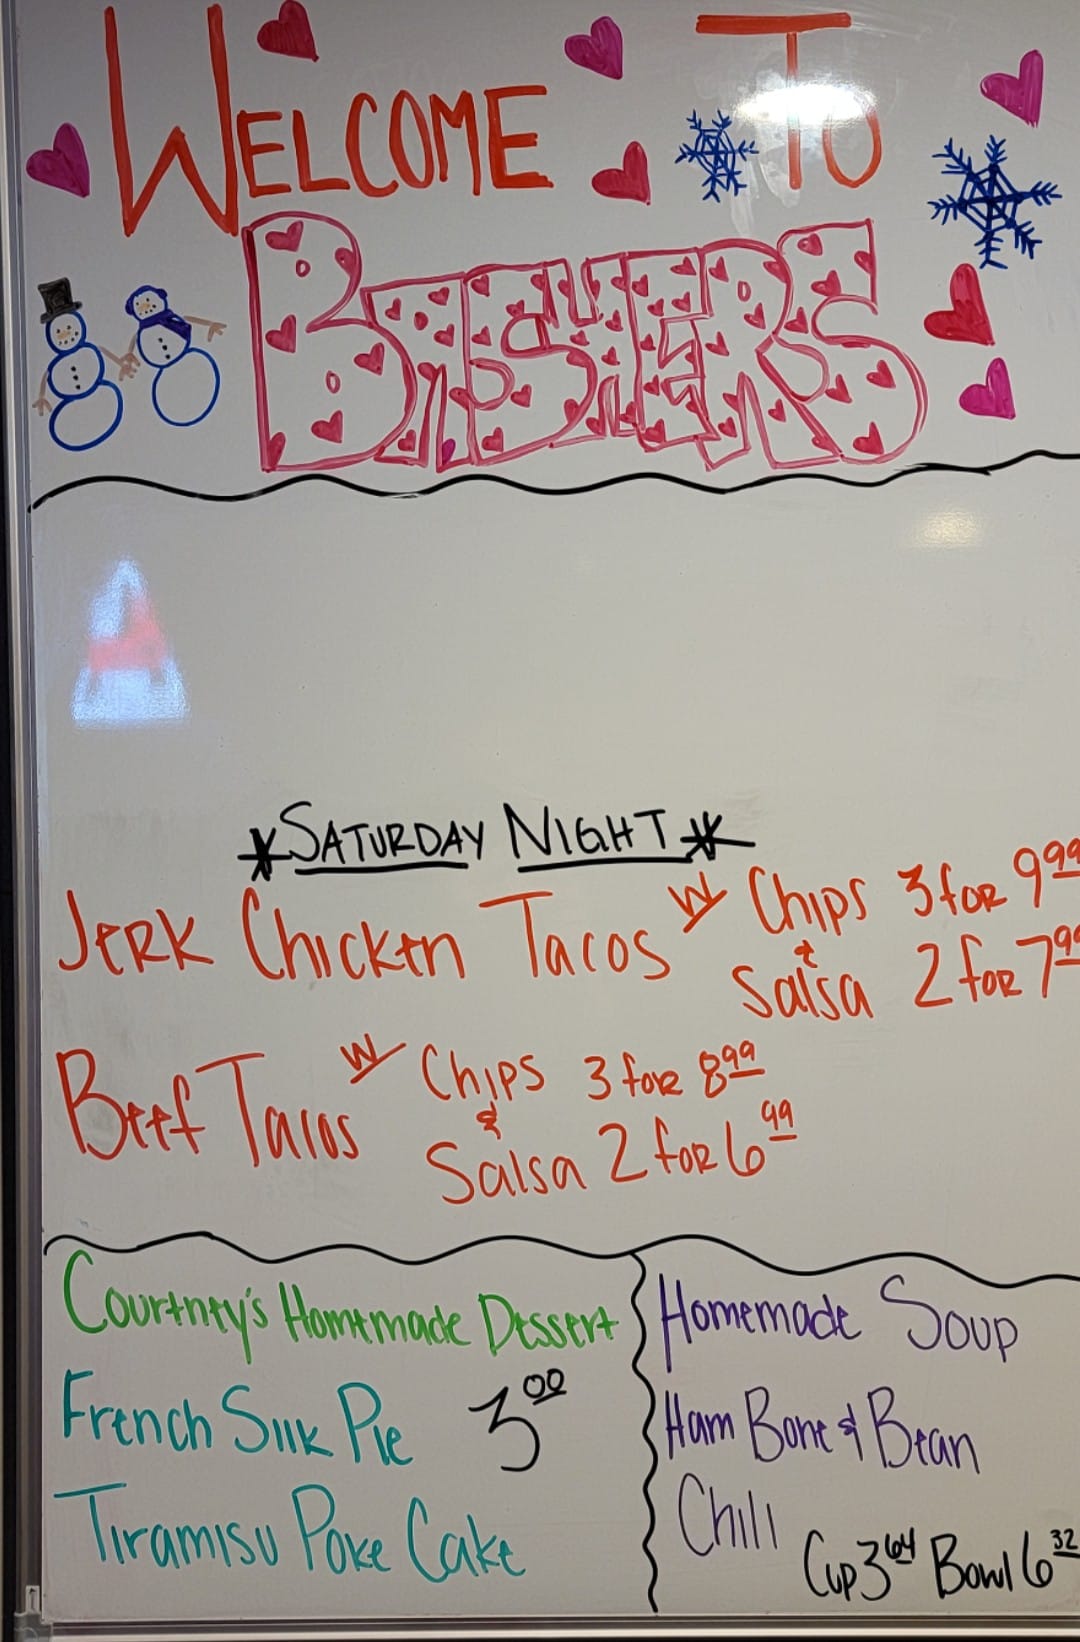 WELCOME TO
BASHERS
*SATURDAY NIGHT*
JERK Chicken Tacos W/ Chips & Salsa 3 for 9.99
2 for 7.99
Beef Tacos W/ Chips & Salsa 3 for 8.99
2 for 6.99
Courtney's Homemade Dessert
French Silk Pie 3.00
Tiramisu Poke Cake
Homemade Soup
Ham Bone & Bean
Chili
Cup 3.64 Bowl 6.32